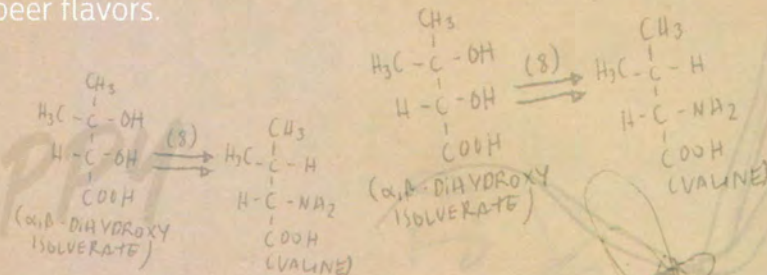 beer flavors.
CH3
H3C - C - OH
H - C - OH
COOH
(α,β-DIHYDROXY
ISOLVERATE)
(8)
CH3
H3C - C - H
H - C - NH2
COOH
(VALINE)
CH3
H3C - C - OH
H - C - OH
COOH
(α,β-DIHYDROXY
ISOLVERATE)
(8)
CH3
H3C - C - H
H - C - NH2
COOH
(VALINE)